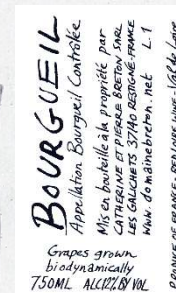 BOURGUEIL
Appellation Bourgueil Contrôlée
Mis en bouteille à la propriété par
CATHERINE ET PIERRE BRETON SARL
LES GALICHETS 37140 RESTIGNÉ FRANCE
www.domainebreton.net L.1
PRODUCE OF FRANCE - RED LOIRE WINE - Val de Loire
Grapes grown
biodynamically
750ML ALC12% BY VOL